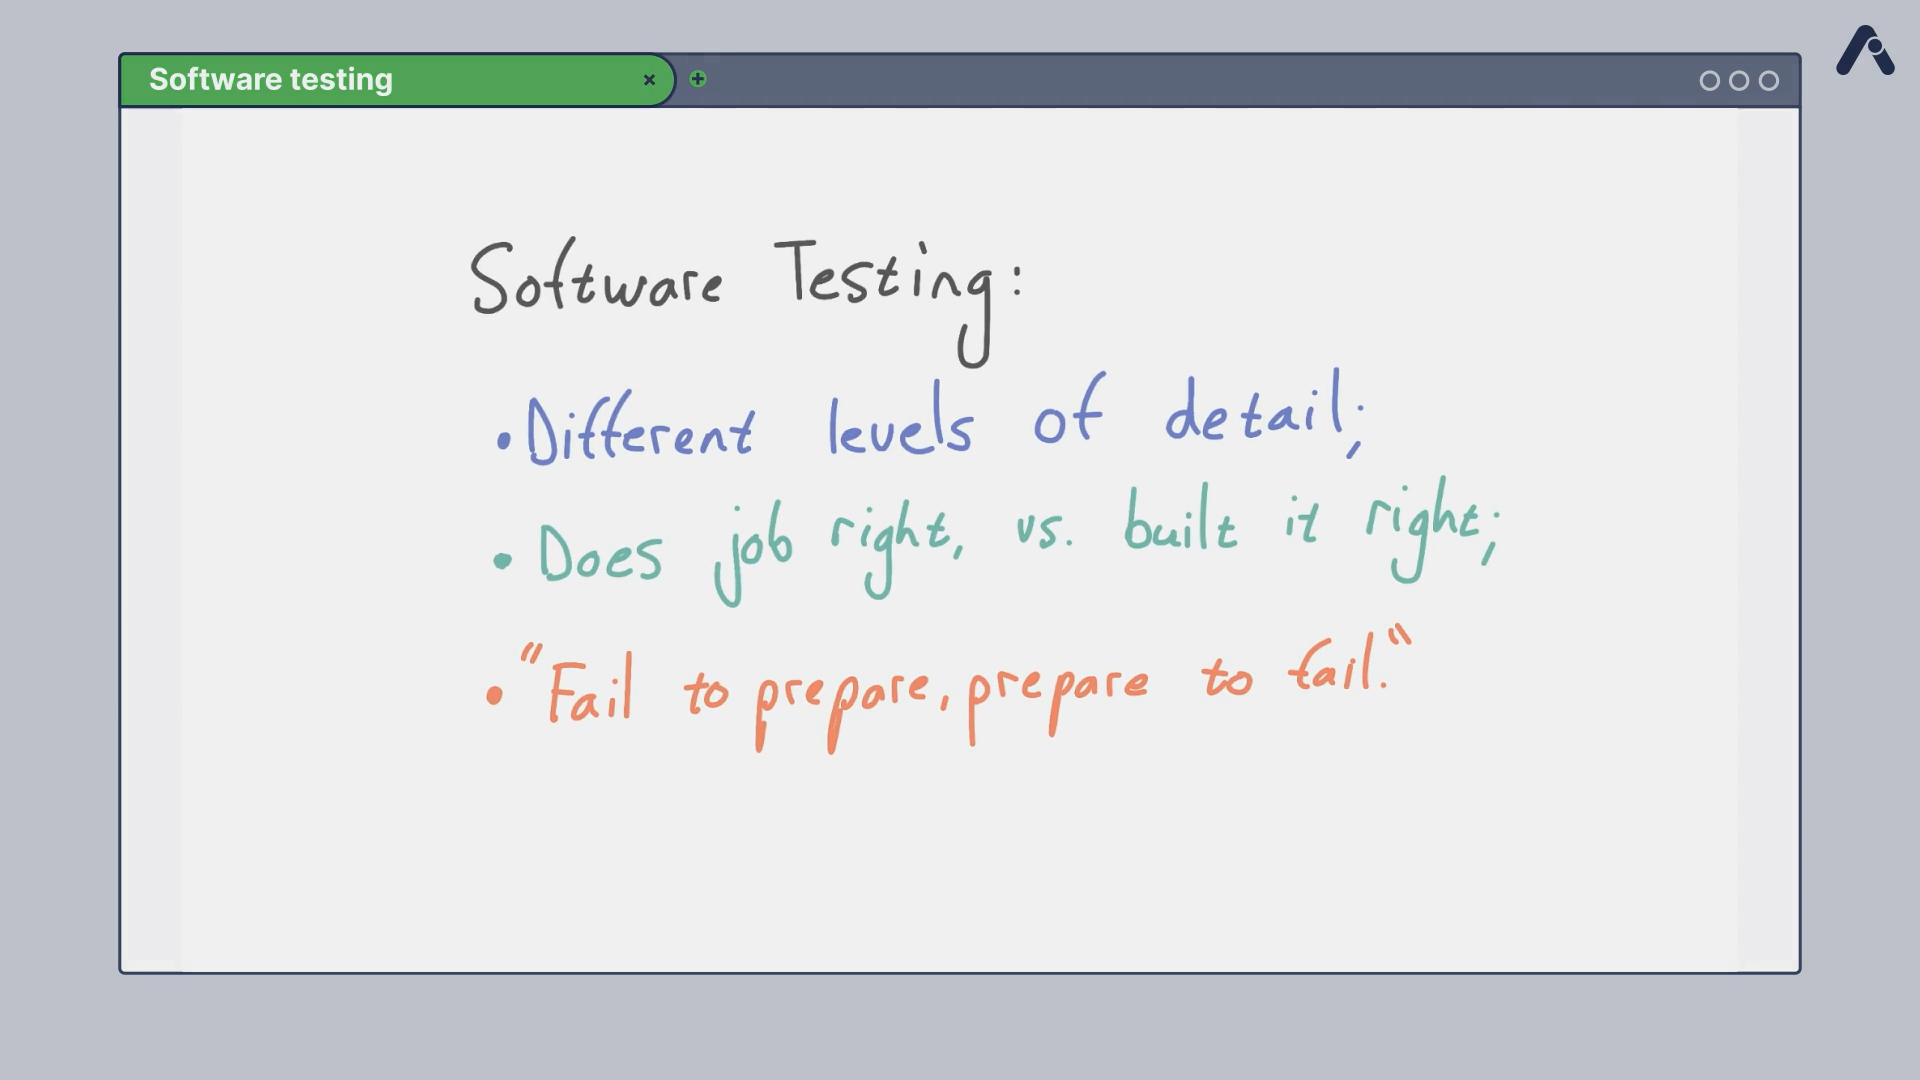 Software testing
Software Testing:
• Different levels of detail;
• Does job right, vs. built it right;
• "Fail to prepare, prepare to fail."